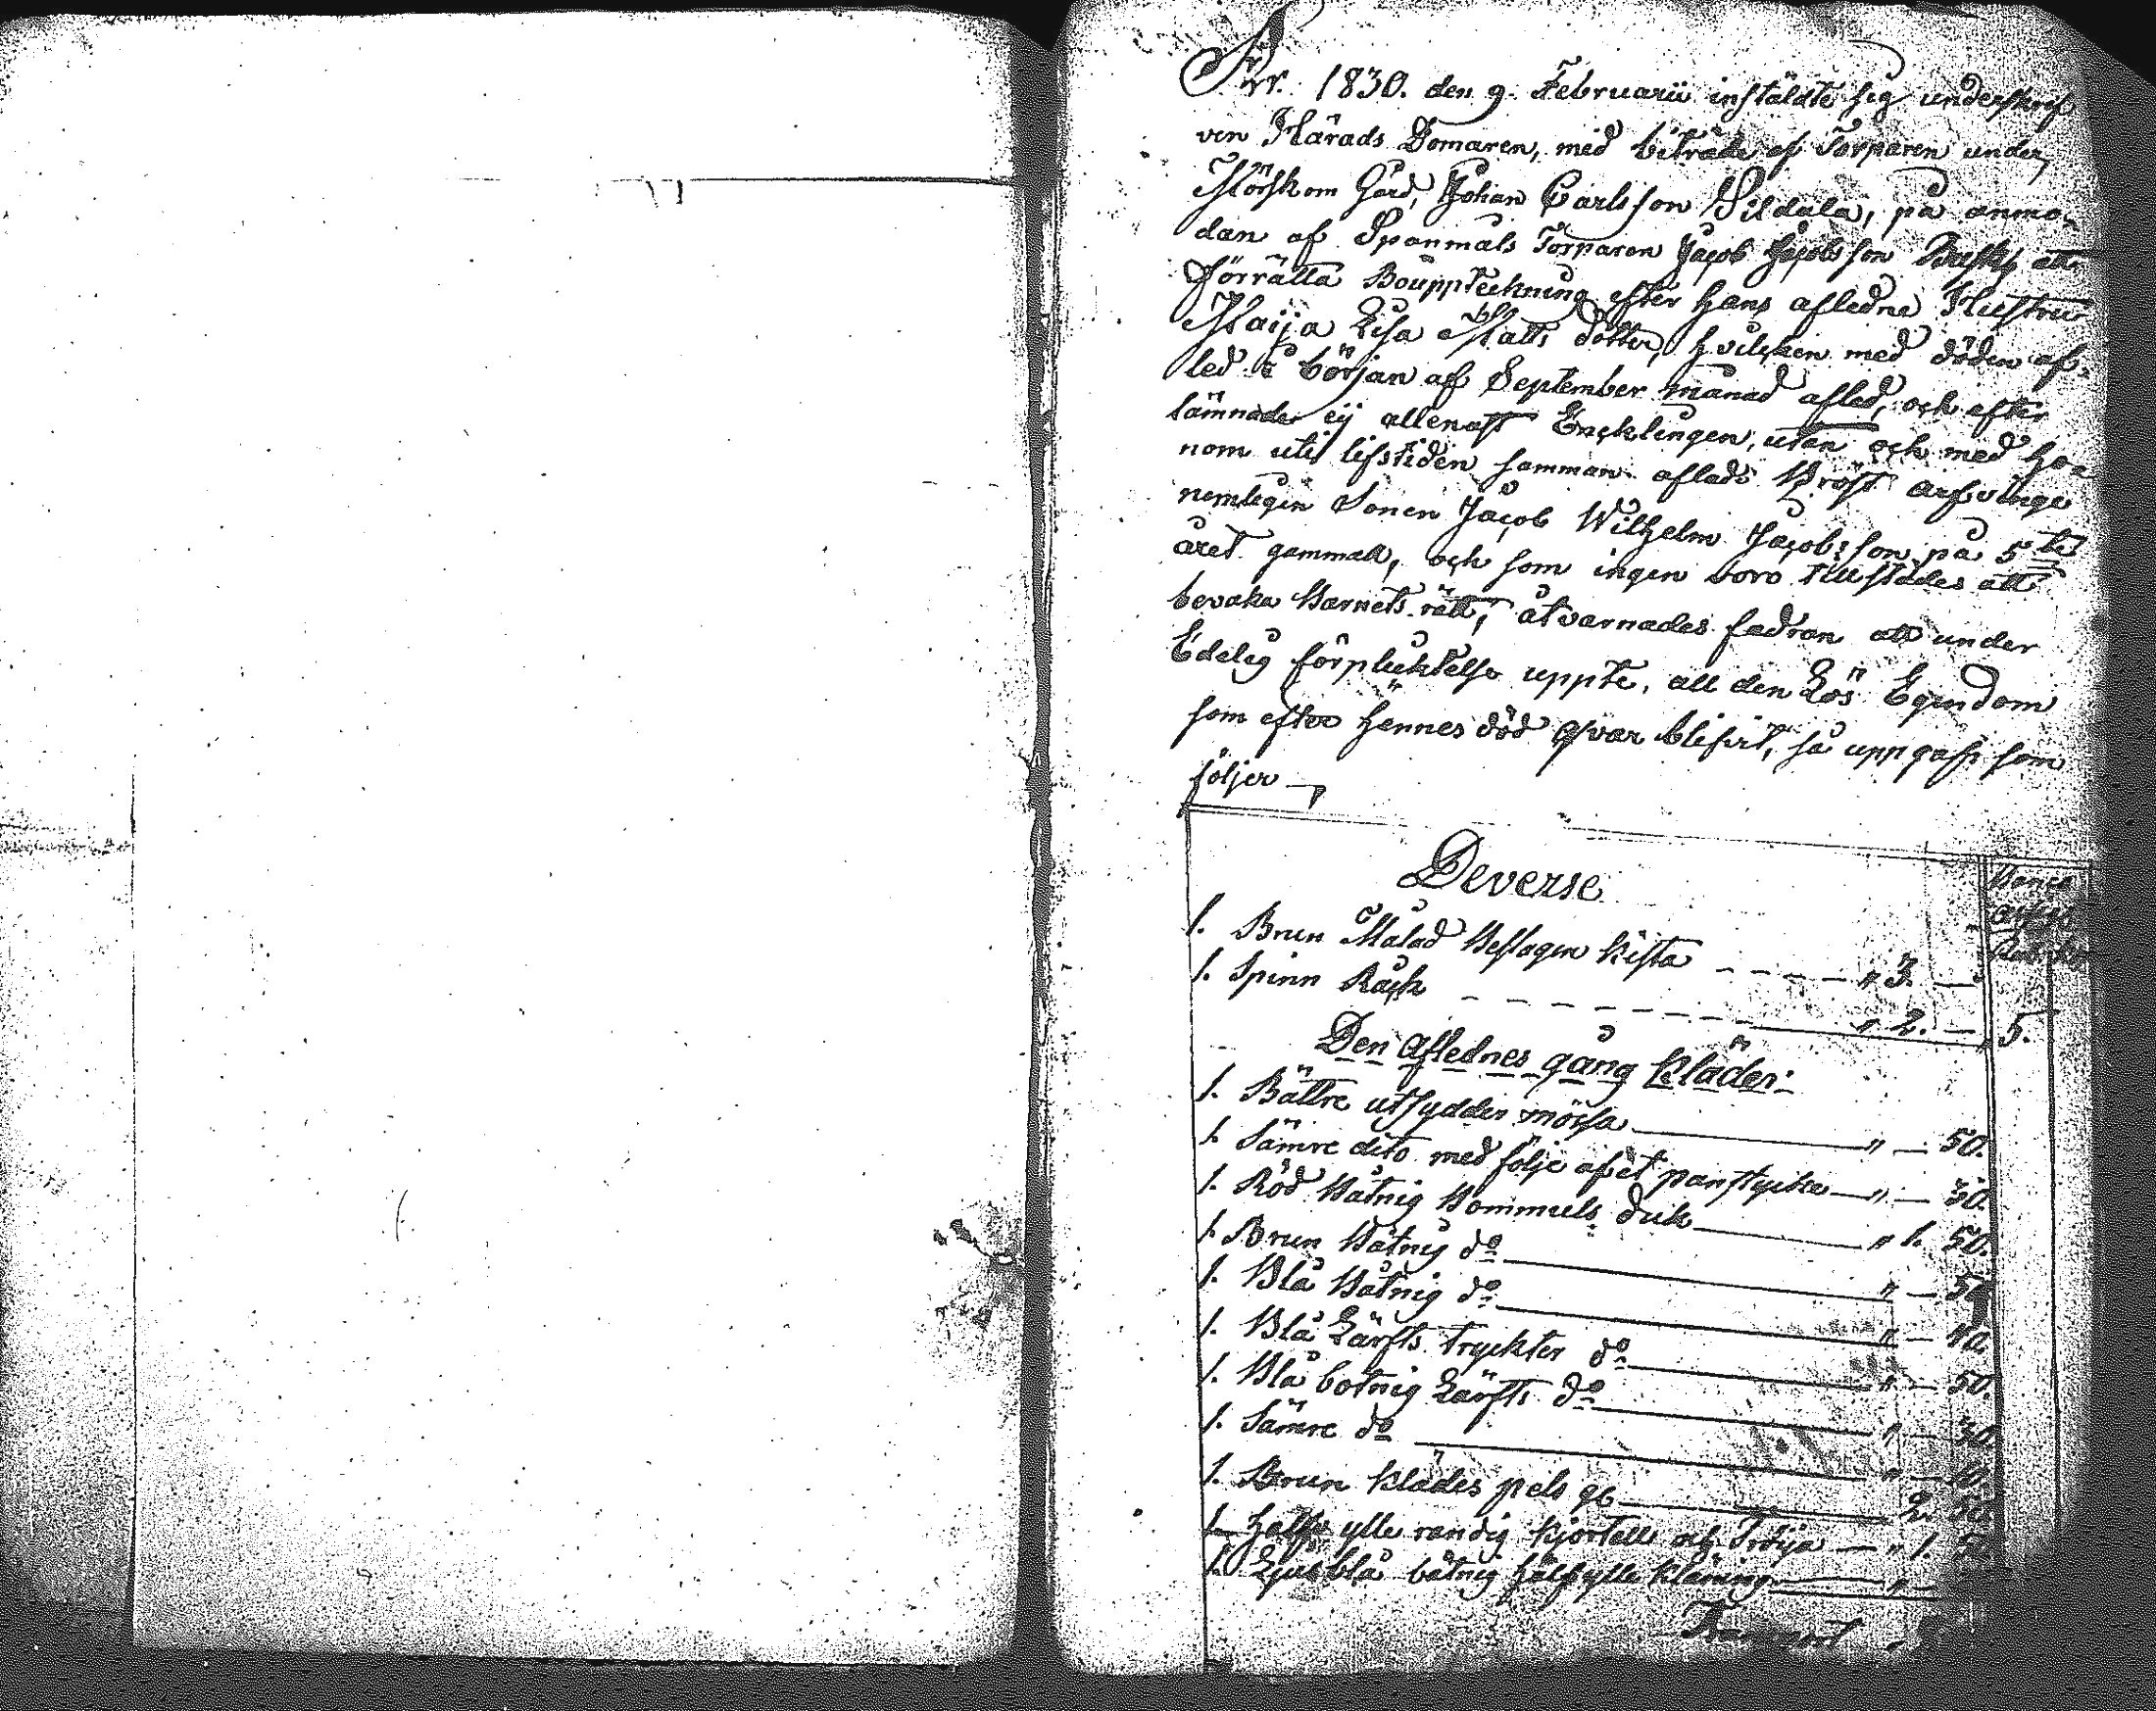 År 1830. den 9. Februarii instäldte sig underskrif
ven Härads Domaren, med biträde af Torparen under
Mörskom Gård, Johan Carlsson Sildala, på anmo-
dan af Spanmåls Torparen Jacob Jacobsson att
förrätta Bouppteckning efter hans afledne Hustru
Maija Lisa Matts dotter, hvilcken med döden af-
led i början af September månad afled, och efter
lämnade eij allenast Encklingen, utan och med ho-
nom uti lifstiden samman aflade Bröst arfvinge
nemligen Sonen Jacob Wilhelm Jacobsson på 5te
året gammall, och som ingen voro tillstädes att
bevaka Barnets rätt, åtvarnades fadren att under
Edelig förplicktelse uppte, all den Lös Egendom
som efter hennes död qvar blifvit, så uppgafs som
följer
Deverse
1. Brun Målad Beslagen Kista " 3. —
1. Spinn Råck " 2. — 5.
Den Aflednes gång Kläder
1. Bättre utsydder mössa " — 50.
1. Sämre dito med följe af et panstycke " — 30.
1. Röd Båtnig Bommuls duk " 1. 50.
1. Brun Båtnig do " — 50
1. Blå Båtnig do " — 40
1. Blå Lärfts tryckter do " — 50.
1. Blå botnig Lärfts do " — 30
1. Sämre do " — 10.
1. Brun Klädes pels 2. 50.
1. Half ylle randig kjortell och Tröija " 1. 50
1. Ljusblå båtnig halfylle Klänning "
Transport